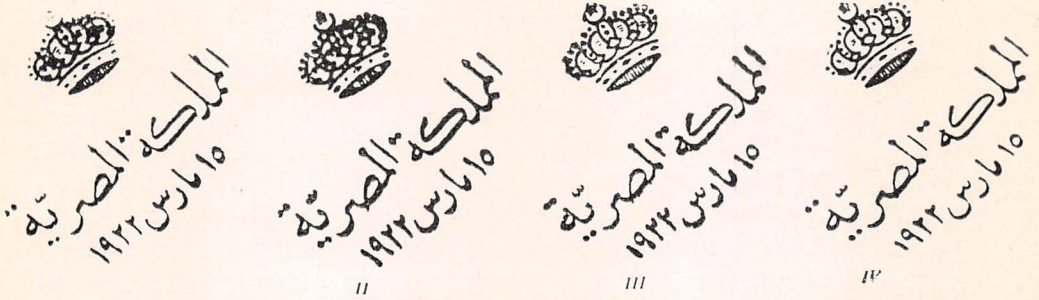 المملكة المصرية
١٥ مارس ١٩٢٢
المملكة المصرية
١٥ مارس ١٩٢٢
II
المملكة المصرية
١٥ مارس ١٩٢٢
III
المملكة المصرية
١٥ مارس ١٩٢٢
IV